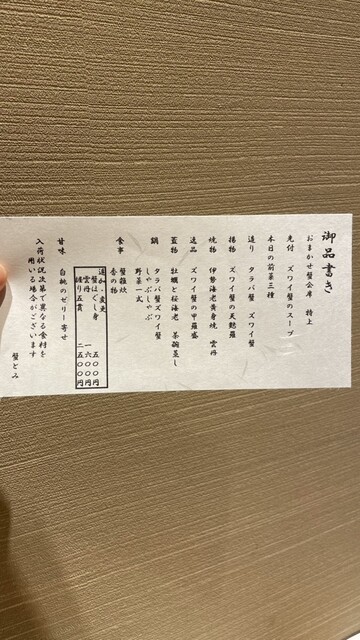 御品書き
おまかせ蟹会席　特上
先付　ズワイ蟹のスープ
本日の前菜三種
造り　タラバ蟹　ズワイ蟹
揚物　ズワイ蟹の天麩羅
焼物　伊勢海老黄身焼　雲丹
逸品　ズワイ蟹の甲羅盛
蓋物　牡蠣と桜海老　茶碗蒸し
鍋　タラバ蟹ズワイ蟹
しゃぶしゃぶ
野菜一式
食事　蟹雑炊
香の物
追加・変更
蟹ほぐし身　五〇〇円
雲丹　一六〇〇円
握り五貫　二五〇〇円
甘味　白桃のゼリー寄せ
入荷状況次第で異なる食材を
用いる場合がございます
蟹どみ